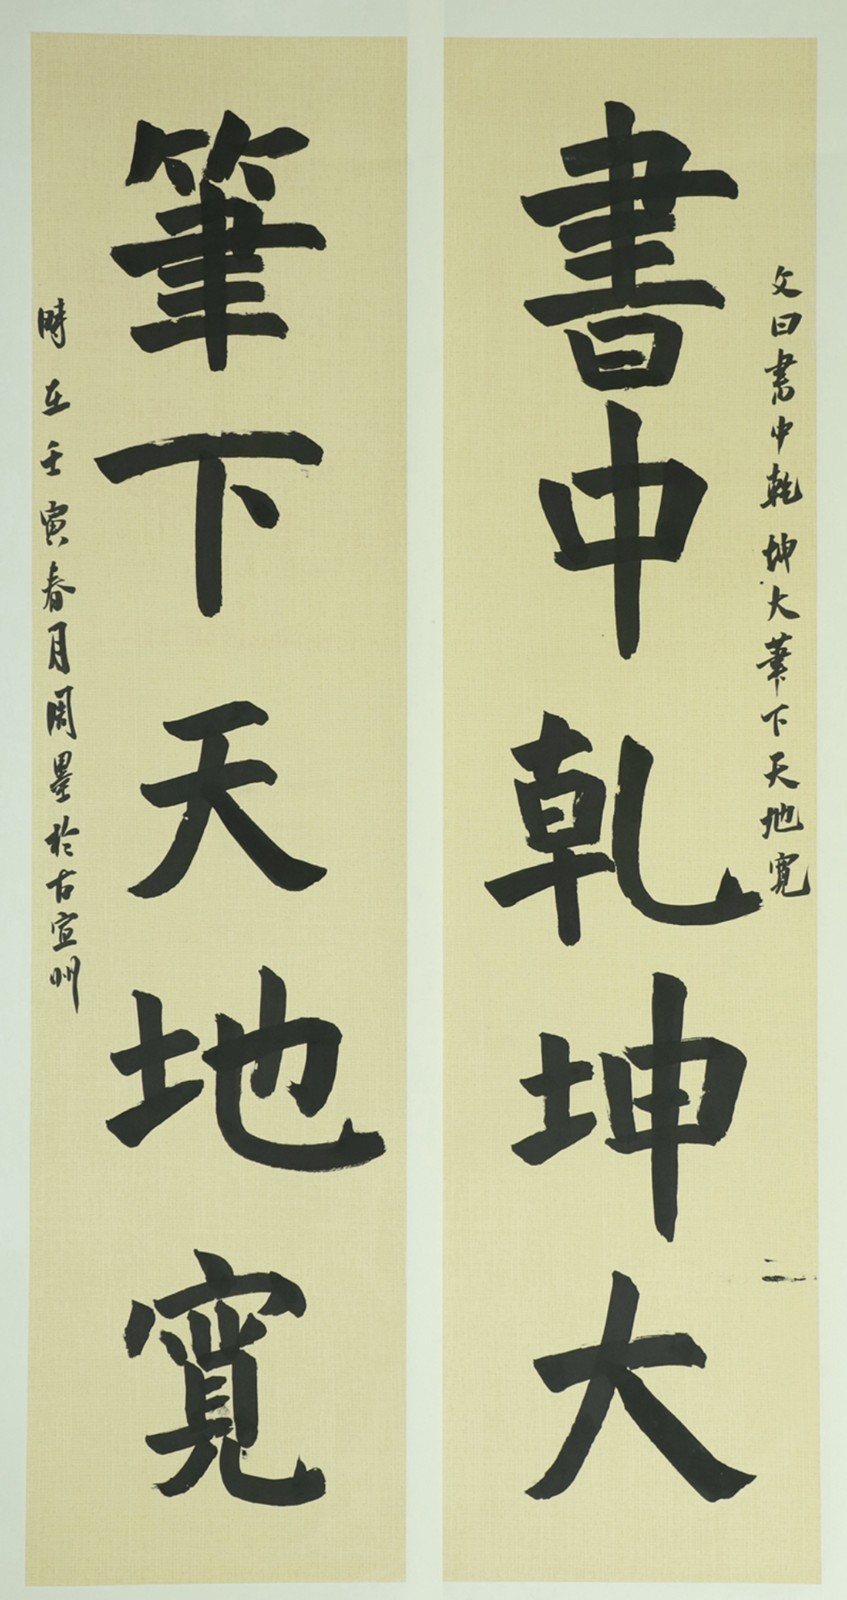 文曰書中乾坤大筆下天地寬
書中乾坤大
筆下天地寬
時在壬寅春月周墨於古宣州